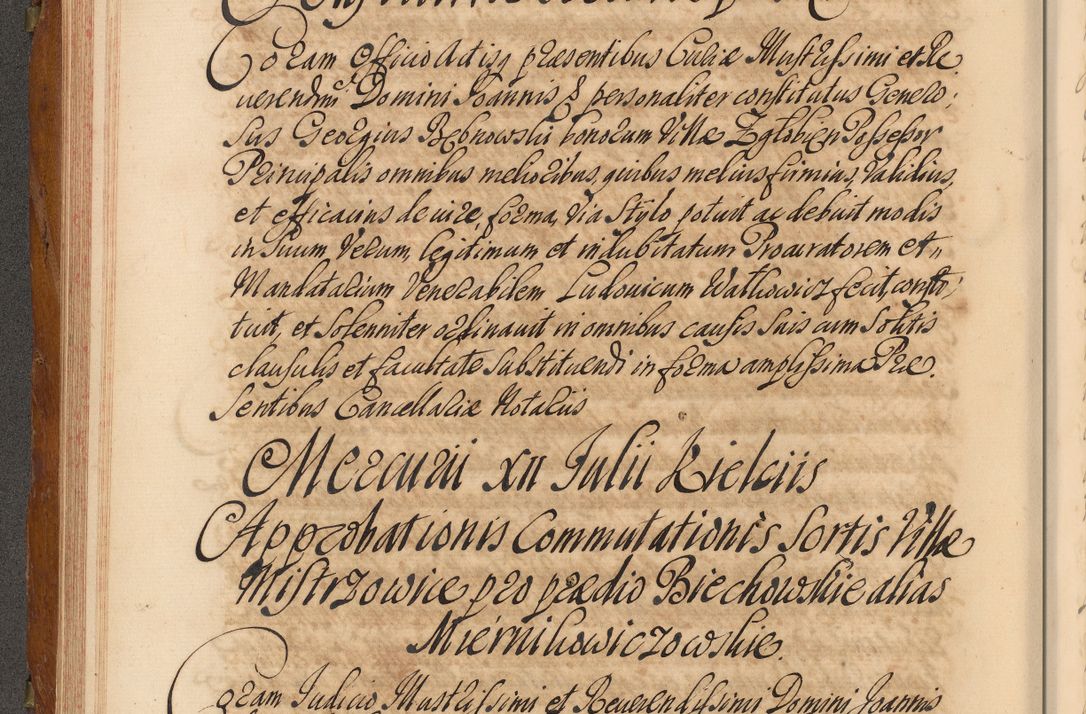 Coram Officio Actisq præsentibus Curiæ Illustrissimi et Re
verendmi Domini Joannis & personaliter constitutus Genero,
sus Georgius Rebnowski bonorum Villæ Zglobien Possessor
Principalis omnibus melioribus, quibus melius, firmius, validius,
et efficacius de iure, forma, via Stylo potuit ac debuit modis
in suum Verum, legitimum et indubitatum Procuratorem et
Mandatarium Venerabilem Ludovicum Wathowicz fecit, consti,
tuit, et solenniter ordinavit in omnibus causis suis cum solitis
clausulis et facultate substituendi in forma amplissima Præ.
sentibus Cancellariæ Notariis
Mercurii XII Julii Kielciis
Approbationis Commutationis Sortis Villæ
Mistrzowice pro prædio Biechowskie alias
Miernikowiczowskie.
Coram Judicio Illustrissimi et Reverendissimi Domini Joannis